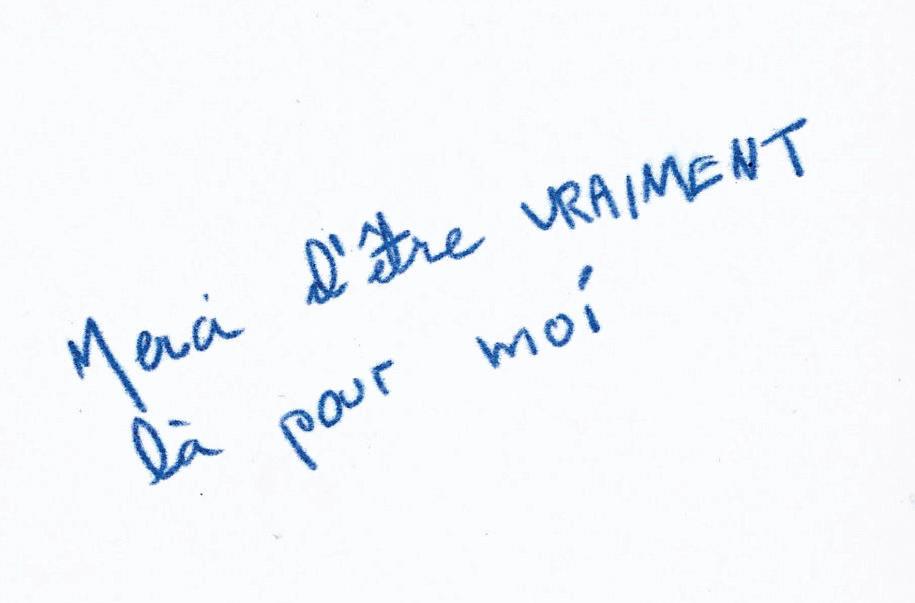 Merci d'être VRAIMENT
là pour moi